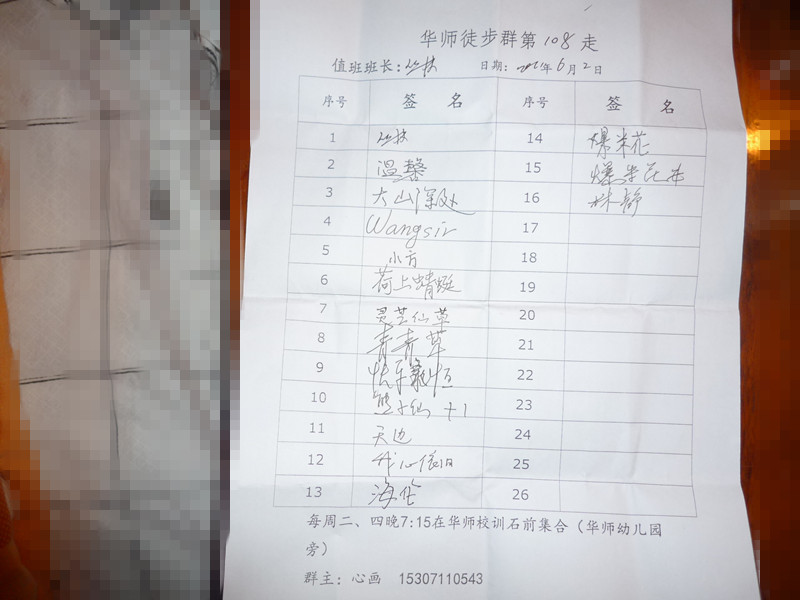 华师徒步群第108走
值班班长：丛林 日期：2012年6月2日
序号 签 名 序号 签 名
1 丛林 14 爆米花
2 温馨 15
3 大山深处 16 林静
4 Wangsir 17
5 小方 18
6 荷上蜻蜓 19
7 灵芝仙草 20
8 青青草 21
9 22
10 熊大仙 +1 23
11 天边 24
12 我心依旧 25
13 海伦 26
每周二、四晚7:15在华师校训石前集合（华师幼儿园
旁）
群主：心画 15307110543